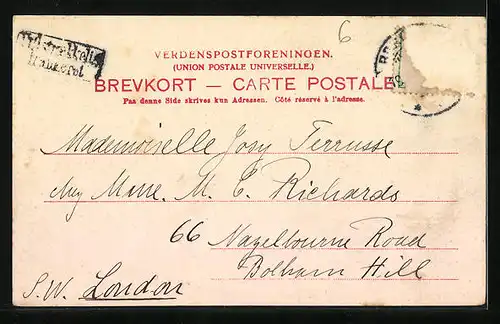 6
VERDENSPOSTFORENINGEN.
(UNION POSTALE UNIVERSELLE.)
BREVKORT — CARTE POSTALE
Paa denne Side skrives kun Adressen. Côté réservé à l'adresse.
Mademoiselle Josy Terrusse
chez Mme. M. C. Richards
66 Nazelbourne Road
Bolham Hill
S.W. London